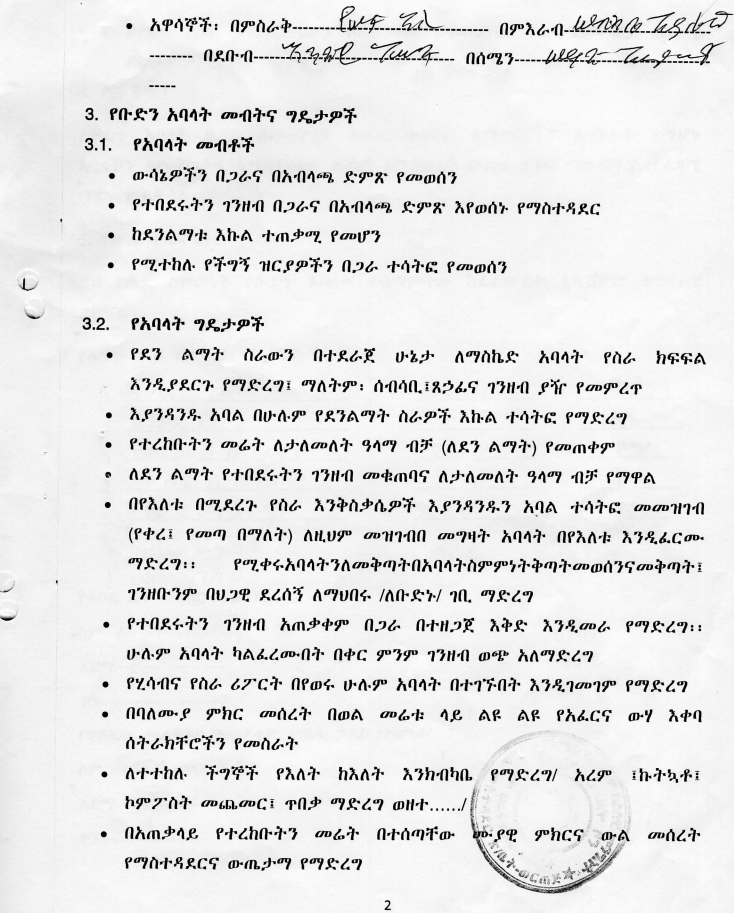 • አዋሳኞች፡ በምስራቅ---------------- በምእራብ----------------
-------- በደቡብ---------------- በሰሜን----------------
-----
3. የቡድን አባላት መብትና ግዴታዎች
3.1. የአባላት መብቶች
• ውሳኔዎችን በጋራና በአብላጫ ድምጽ የመወሰን
• የተበደሩትን ገንዘብ በጋራና በአብላጫ ድምጽ እየወሰኑ የማስተዳደር
• ከደንልማቱ እኩል ተጠቃሚ የመሆን
• የሚተከሉ የችግኝ ዝርያዎችን በጋራ ተሳትፎ የመወሰን
3.2. የአባላት ግዴታዎች
• የደን ልማት ስራውን በተደራጀ ሁኔታ ለማስኬድ አባላት የስራ ክፍፍል
እንዲያደርጉ የማድረግ፤ ማለትም፡ ሰብሳቢ፤ጸኃፊና ገንዘብ ያዥ የመምረጥ
• እያንዳንዱ አባል በሁሉም የደንልማት ስራዎች እኩል ተሳትፎ የማድረግ
• የተረከቡትን መሬት ለታለመለት ዓላማ ብቻ (ለደን ልማት) የመጠቀም
• ለደን ልማት የተበደሩትን ገንዘብ መቁጠባና ለታለመለት ዓላማ ብቻ የማዋል
• በየእለቱ በሚደረጉ የስራ እንቅስቃሴዎች እያንዳንዱን አባል ተሳትፎ መመዝገብ
(የቀረ፤ የመጣ በማለት) ለዚህም መዝገብበ መግዛት አባላት በየእለቱ እንዲፈርሙ
ማድረግ፡፡ የሚቀሩአባላትንለመቅጣትበአባላትስምምነትቅጣትመወሰንናመቅጣት፤
ገንዘቡንም በህጋዊ ደረሰኝ ለማህበሩ /ለቡድኑ/ ገቢ ማድረግ
• የተበደሩትን ገንዘብ አጠቃቀም በጋራ በተዘጋጀ እቅድ እንዲመራ የማድረግ፡፡
ሁሉም አባላት ካልፈረሙበት በቀር ምንም ገንዘብ ወጭ አለማድረግ
• የሂሳብና የስራ ሪፖርት በየወሩ ሁሉም አባላት በተገኙበት እንዲገመገም የማድረግ
• በባለሙያ ምክር መሰረት በወል መሬቱ ላይ ልዩ ልዩ የአፈርና ውሃ እቀባ
ሰትራክቸሮችን የመስራት
• ለተተከሉ ችግኞች የእለት ከእለት እንክብካቤ የማድረግ/ አረም ፤ኩትኳቶ፤
ኮምፖስት መጨመር፤ ጥበቃ ማድረግ ወዘተ....../
• በአጠቃላይ የተረከቡትን መሬት በተሰጣቸው ሙያዊ ምክርና ውል መሰረት
የማስተዳደርና ውጤታማ የማድረግ
2